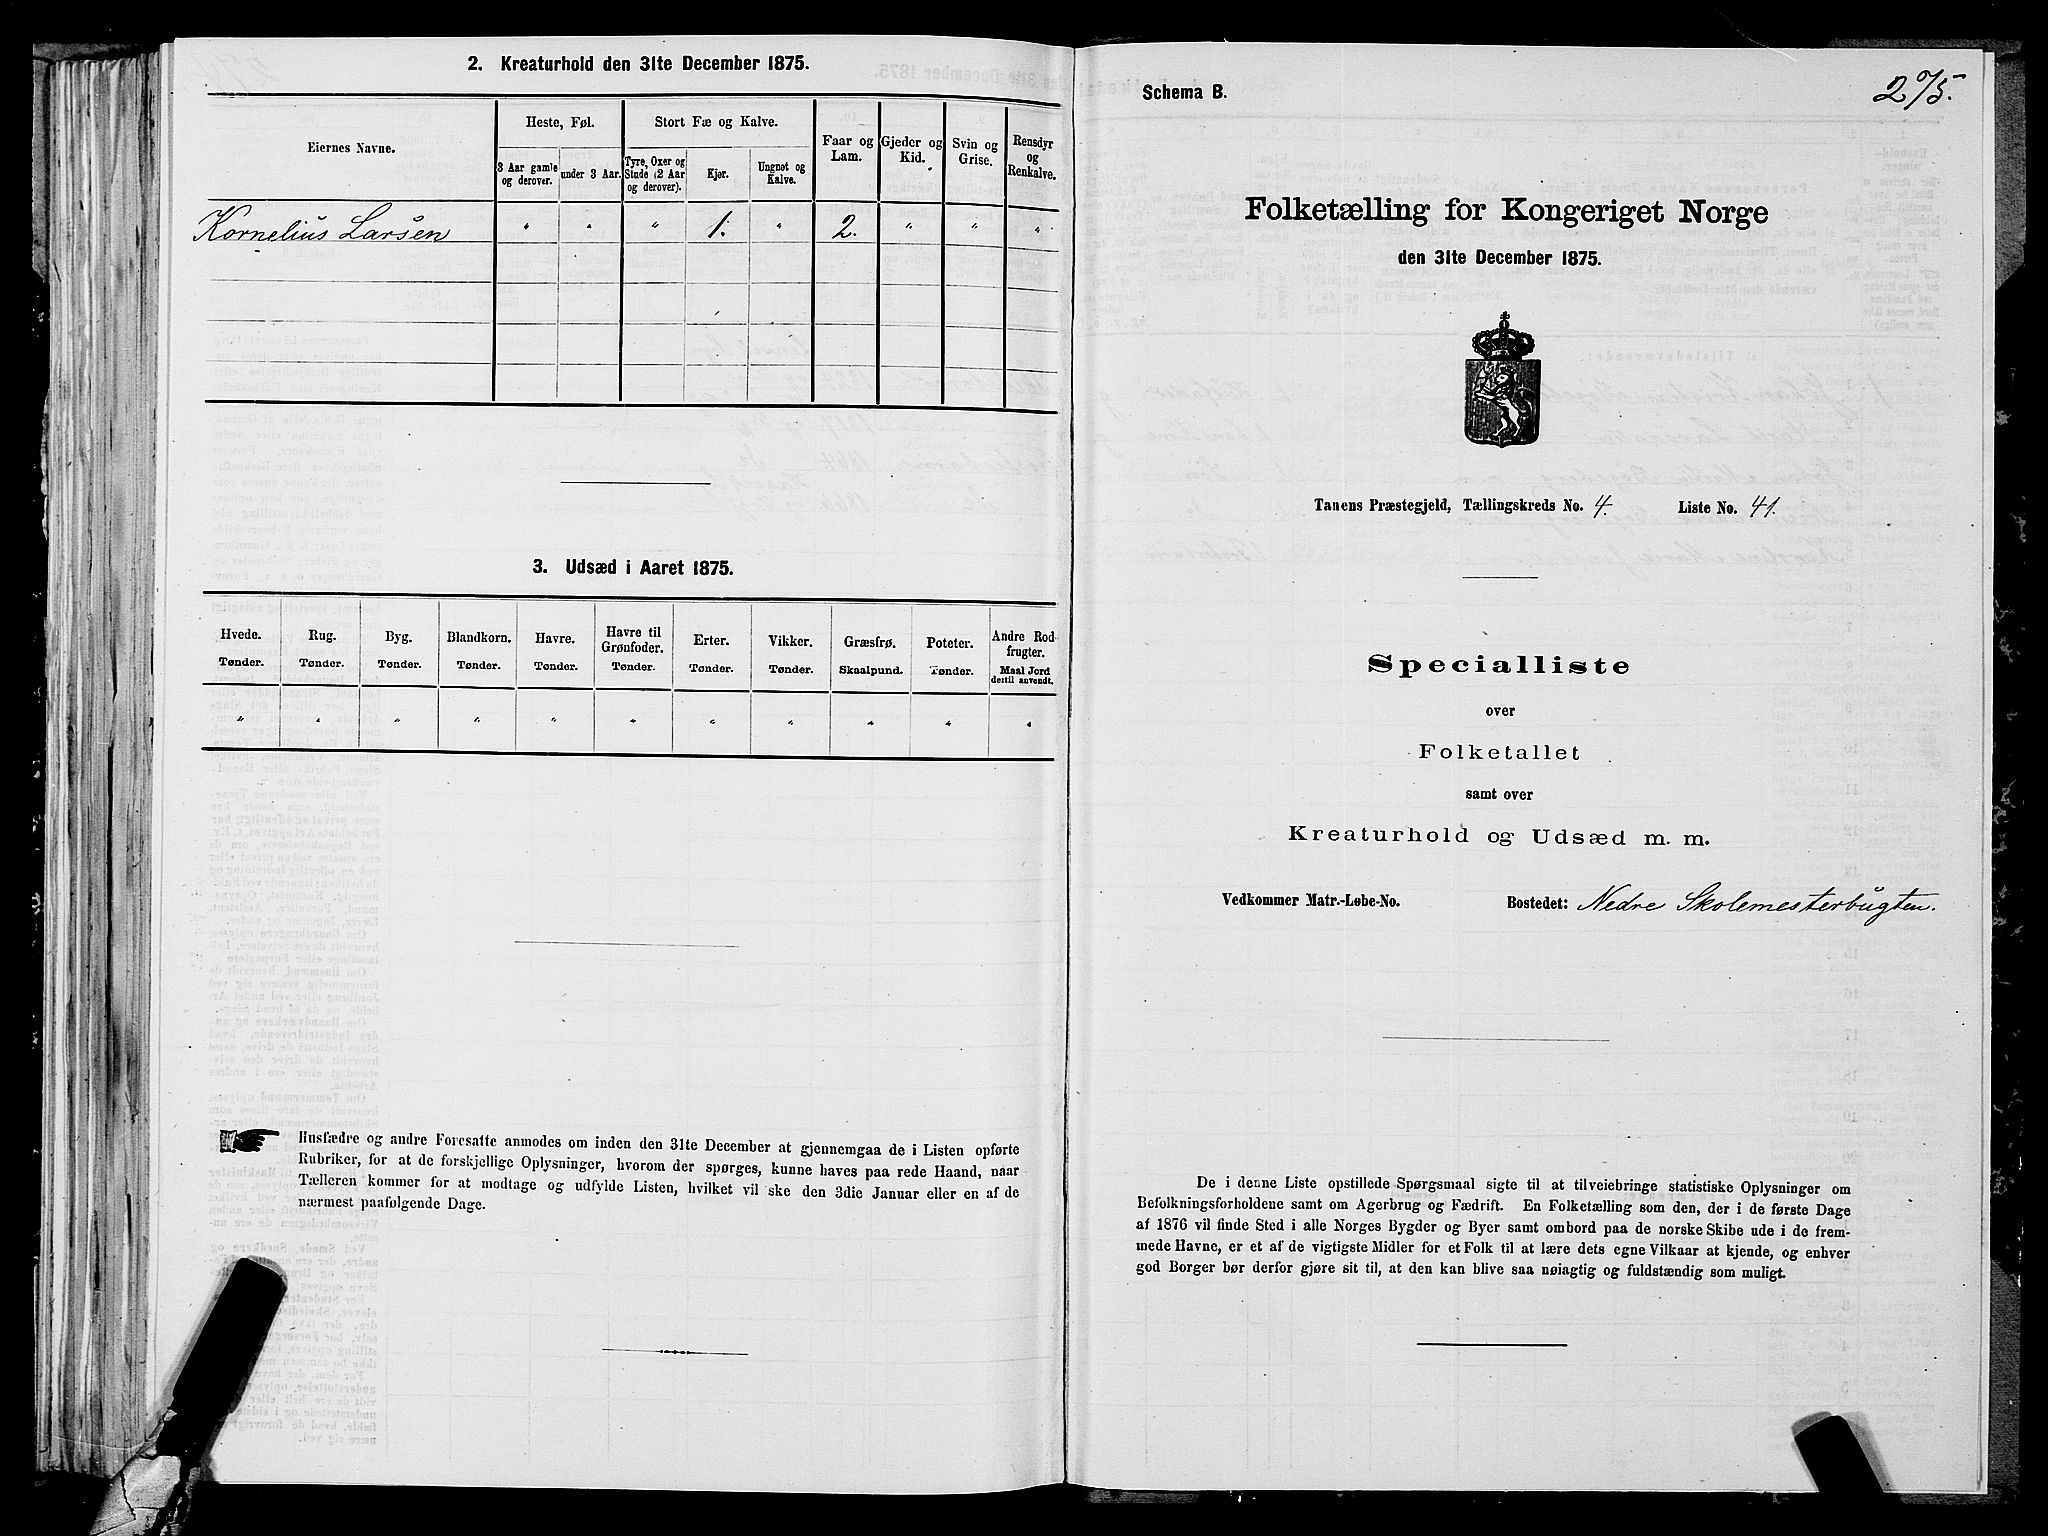 2. Kreaturhold den 31te December 1875.
Eiernes Navne.
Heste, Føl.
Stort Fæ og Kalve.
Faar og Lam.
Gjeder og Kid.
Svin og Grise.
Rensdyr og Renkalve.
3 Aar gamle og derover.
under 3 Aar.
Tyre, Oxer og Stude (2 Aar og derover).
Kjør.
Ungnøt og Kalve.
Kornelius Larsen " " " 1. " 2. " " "
3. Udsæd i Aaret 1875.
Hvede. Rug. Byg. Blandkorn. Havre. Havre til Grønfoder. Erter. Vikker. Græsfrø. Poteter. Andre Rodfrugter.
Tønder. Tønder. Tønder. Tønder. Tønder. Tønder. Tønder. Tønder. Skaalpund. Tønder. Maal Jord dertil anvendt.
" " " " " " " " " " "
Husfædre og andre Foresatte anmodes om inden den 31te December at gjennemgaa de i Listen opførte
Rubriker, for at de forskjellige Oplysninger, hvorom der spørges, kunne haves paa rede Haand, naar
Tælleren kommer for at modtage og udfylde Listen, hvilket vil ske den 3die Januar eller en af de
nærmest paafølgende Dage.
Schema B.
275.
Folketælling for Kongeriget Norge
den 31te December 1875.
Tanens Præstegjeld, Tællingskreds No. 4. Liste No. 41.
Specialliste
over
Folketallet
samt over
Kreaturhold og Udsæd m. m.
Vedkommer Matr.-Løbe-No. Bostedet: Nedre Skolemesterbugten.
De i denne Liste opstillede Spørgsmaal sigte til at tilveiebringe statistiske Oplysninger om
Befolkningsforholdene samt om Agerbrug og Fædrift. En Folketælling som den, der i de første Dage
af 1876 vil finde Sted i alle Norges Bygder og Byer samt ombord paa de norske Skibe ude i de frem-
mede Havne, er et af de vigtigste Midler for et Folk til at lære dets egne Vilkaar at kjende, og enhver
god Borger bør derfor gjøre sit til, at den kan blive saa nøiagtig og fuldstændig som muligt.